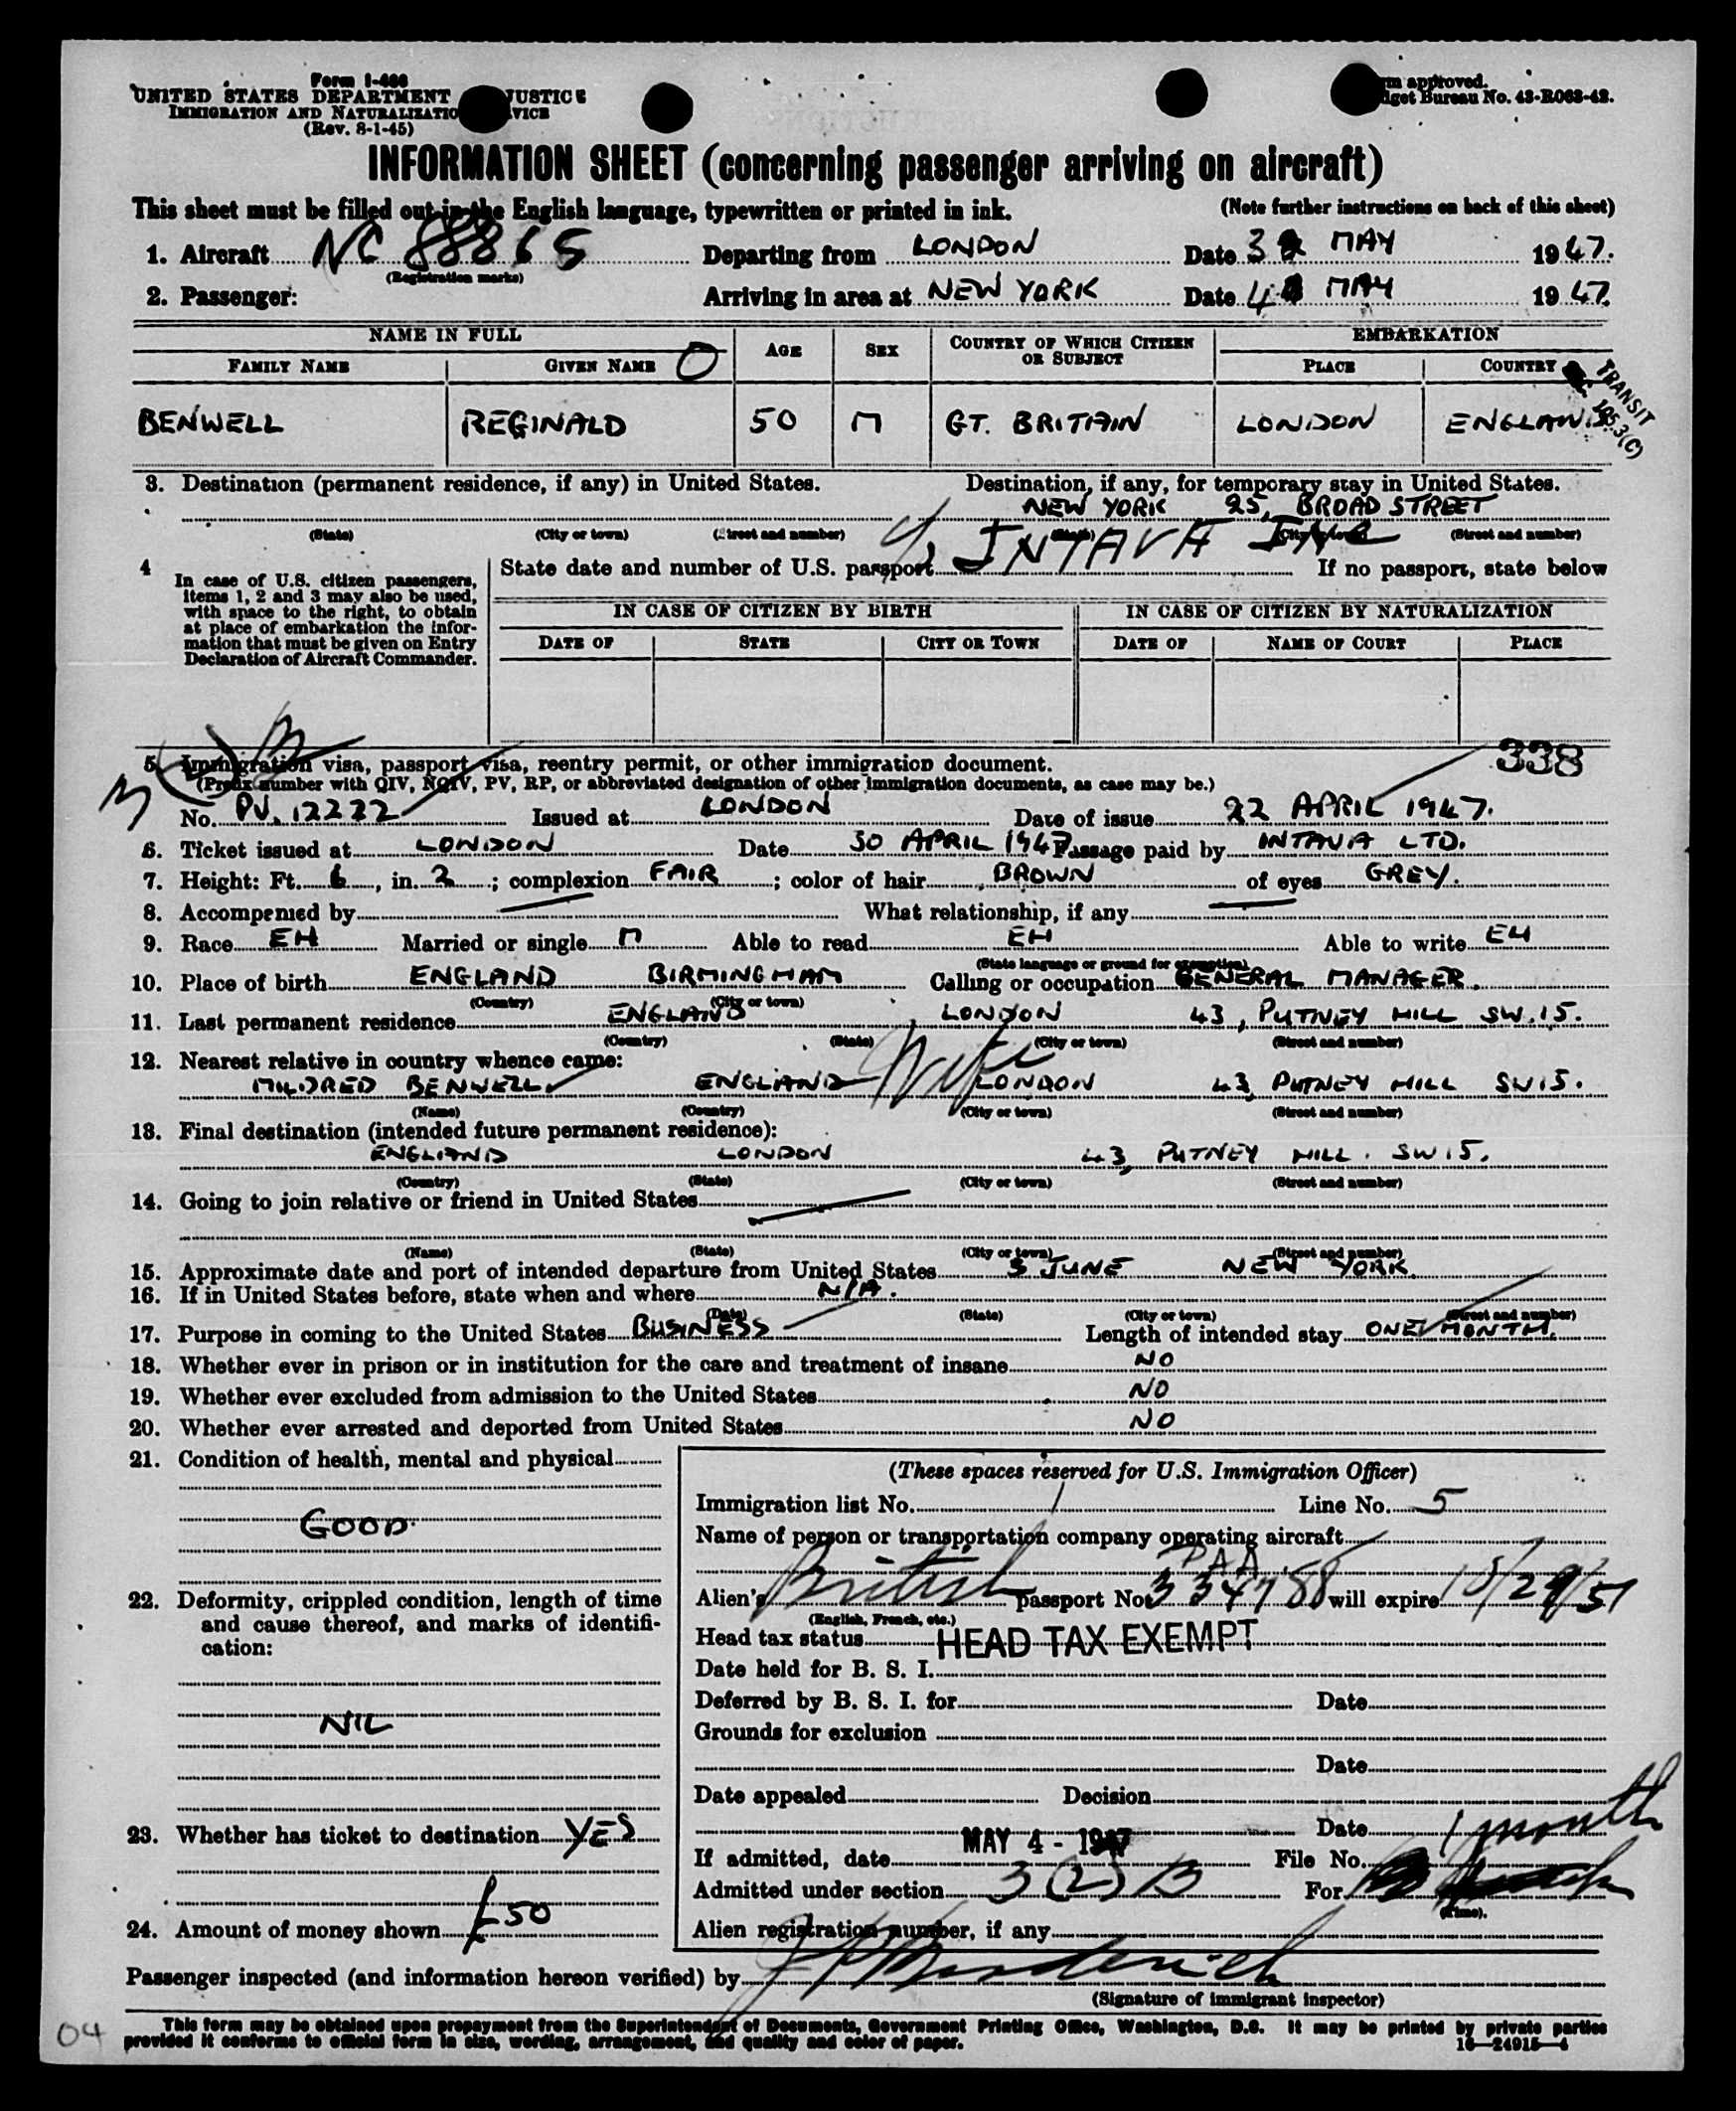 Form I-466
UNITED STATES DEPARTMENT JUSTICE
IMMIGRATION AND NATURALIZATIO VICE
(Rev. 8-1-45)
rm approved.
dget Bureau No. 43-R063-42.
INFORMATION SHEET (concerning passenger arriving on aircraft)
This sheet must be filled out in the English language, typewritten or printed in ink. (Note further instructions on back of this sheet)
1. Aircraft NC 88865 Departing from LONDON Date 3 MAY 1947.
(Registration marks)
2. Passenger: Arriving in area at NEW YORK Date 4 MAY 1947.
NAME IN FULL AGE SEX COUNTRY OF WHICH CITIZEN OR SUBJECT EMBARKATION
FAMILY NAME GIVEN NAME O PLACE COUNTRY
TRANSIT
BENWELL REGINALD 50 M GT. BRITAIN LONDON ENGLAND
3. Destination (permanent residence, if any) in United States. Destination, if any, for temporary stay in United States.
NEW YORK 25, BROAD STREET
(State) (City or town) (Street and number) (State) (City or town) (Street and number)
c/o INTAVA INC
4 In case of U.S. citizen passengers, items 1, 2 and 3 may also be used, with space to the right, to obtain at place of embarkation the information that must be given on Entry Declaration of Aircraft Commander.
State date and number of U.S. passport If no passport, state below
IN CASE OF CITIZEN BY BIRTH IN CASE OF CITIZEN BY NATURALIZATION
DATE OF STATE CITY OR TOWN DATE OF NAME OF COURT PLACE
338
5. Immigration visa, passport visa, reentry permit, or other immigration document.
(Prefix number with QIV, NQIV, PV, RP, or abbreviated designation of other immigration documents, as case may be.)
No. PV. 12222 Issued at LONDON Date of issue 22 APRIL 1947.
6. Ticket issued at LONDON Date 30 APRIL 1947 Passage paid by INTAVA LTD.
7. Height: Ft. 6, in. 2; complexion FAIR; color of hair BROWN of eyes GREY.
8. Accompanied by — What relationship, if any —
9. Race EH Married or single M Able to read EH Able to write EH
(State language or ground for exemption)
10. Place of birth ENGLAND BIRMINGHAM Calling or occupation GENERAL MANAGER.
(Country) (City or town)
11. Last permanent residence ENGLAND LONDON 43, PUTNEY HILL SW.15.
(Country) (State) (City or town) (Street and number)
12. Nearest relative in country whence came: Wife
MILDRED BENWELL ENGLAND LONDON 43, PUTNEY HILL SW15.
(Name) (Country) (City or town) (Street and number)
13. Final destination (intended future permanent residence):
ENGLAND LONDON 43, PUTNEY HILL. SW15.
(Country) (State) (City or town) (Street and number)
14. Going to join relative or friend in United States —
(Name) (State) (City or town) (Street and number)
15. Approximate date and port of intended departure from United States 3 JUNE NEW YORK.
16. If in United States before, state when and where N/A.
(Date) (State) (City or town) (Street and number)
17. Purpose in coming to the United States BUSINESS Length of intended stay ONE MONTH.
18. Whether ever in prison or in institution for the care and treatment of insane NO
19. Whether ever excluded from admission to the United States NO
20. Whether ever arrested and deported from United States NO
21. Condition of health, mental and physical
GOOD.
22. Deformity, crippled condition, length of time and cause thereof, and marks of identification:
NIL
23. Whether has ticket to destination YES
24. Amount of money shown £50
(These spaces reserved for U.S. Immigration Officer)
Immigration list No. 1 Line No. 5
Name of person or transportation company operating aircraft
PAA
Alien's British passport No. 334788 will expire 10/29/51
(English, French, etc.)
Head tax status HEAD TAX EXEMPT
Date held for B. S. I.
Deferred by B. S. I. for Date
Grounds for exclusion
Date
Date appealed Decision
Date 1 month
If admitted, date MAY 4 - 1947 File No.
Admitted under section 3(2)B For
(Time).
Alien registration number, if any
Passenger inspected (and information hereon verified) by
(Signature of immigrant inspector)
This form may be obtained upon prepayment from the Superintendent of Documents, Government Printing Office, Washington, D.C. It may be printed by private parties
provided it conforms to official form in size, wording, arrangement, and quality and color of paper.
16—24915—4
04